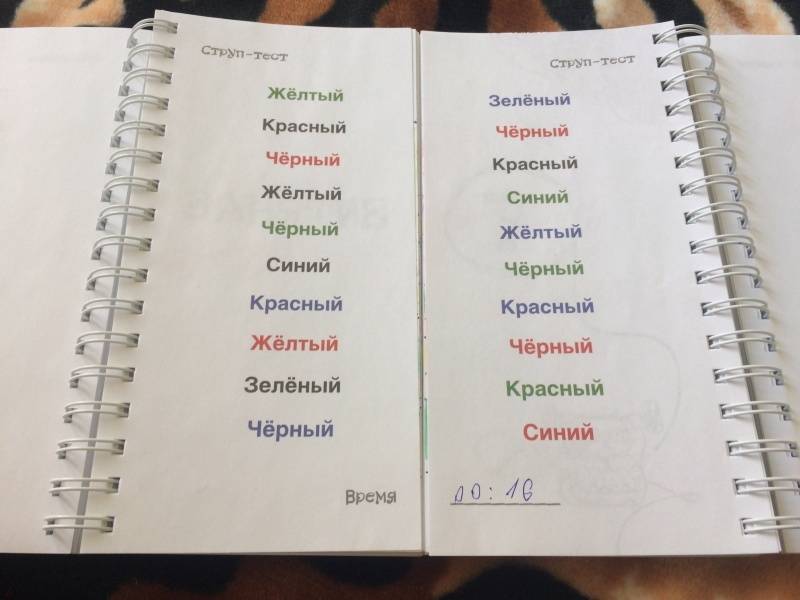 Струп-тест
Жёлтый
Красный
Чёрный
Жёлтый
Чёрный
Синий
Красный
Жёлтый
Зелёный
Чёрный
Время
Струп-тест
Зелёный
Чёрный
Красный
Синий
Жёлтый
Чёрный
Красный
Чёрный
Красный
Синий
00:16